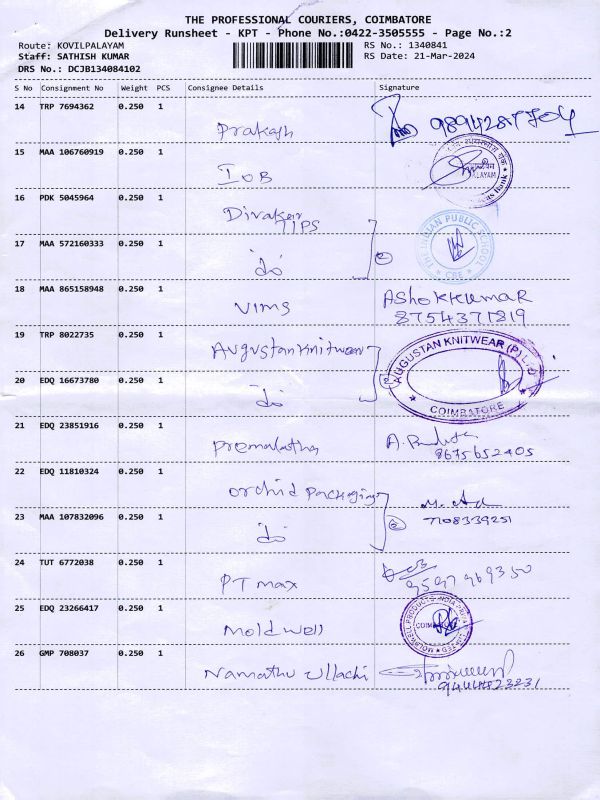 THE PROFESSIONAL COURIERS, COIMBATORE
Delivery Runsheet - KPT - Phone No.:0422-3505555 - Page No.:2
Route: KOVILPALAYAM
RS No.: 1340841
Staff: SATHISH KUMAR
RS Date: 21-Mar-2024
DRS No.: DCJB134084102
S No Consignment No Weight PCS Consignee Details Signature
14 TRP 7694362 0.250 1
Prakash
15 MAA 106760919 0.250 1
IOB
16 PDK 5045964 0.250 1
Divakar
TIPS
THE INDIAN PUBLIC SCHOOL
CBE
17 MAA 572160333 0.250 1
do
2
18 MAA 865158948 0.250 1
VIMS
AShokkumar
8754371819
19 TRP 8022735 0.250 1
Augustan Knitwear
AUGUSTAN KNITWEAR (P) LTD
COIMBATORE
20 EDQ 16673780 0.250 1
do
2
21 EDQ 23851916 0.250 1
Premalatha
9675652405
22 EDQ 11810324 0.250 1
Orchid Packaging
23 MAA 107832096 0.250 1
do
2
7708339251
24 TUT 6772038 0.250 1
PT max
9597969350
25 EDQ 23266417 0.250 1
Moldwell
26 GMP 708037 0.250 1
Namathu Ullachi